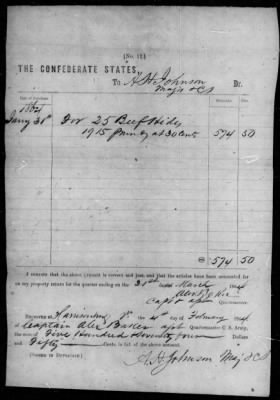 [No. 12.]
THE CONFEDERATE STATES,
To A. H. Johnson Dr.
Maj & CS
1864
Jany 31st For 25 Beef Hides
1915 at 30 cents 574 50
574 50
I CERTIFY that the above account is correct and just, and that the articles have been accounted for
on my property return for the quarter ending on the 31st March 1864
Capt & Quartermaster
RECEIVED at Harrisonburg the 4th day of February 1864
of Captain Alex Baker Quartermaster C. S. Army,
the sum of Five Hundred Seventy four Dollars
and Fifty Cents, in full of the above account.
[SIGNED IN DUPLICATE.]
A. H. Johnson Maj & CS